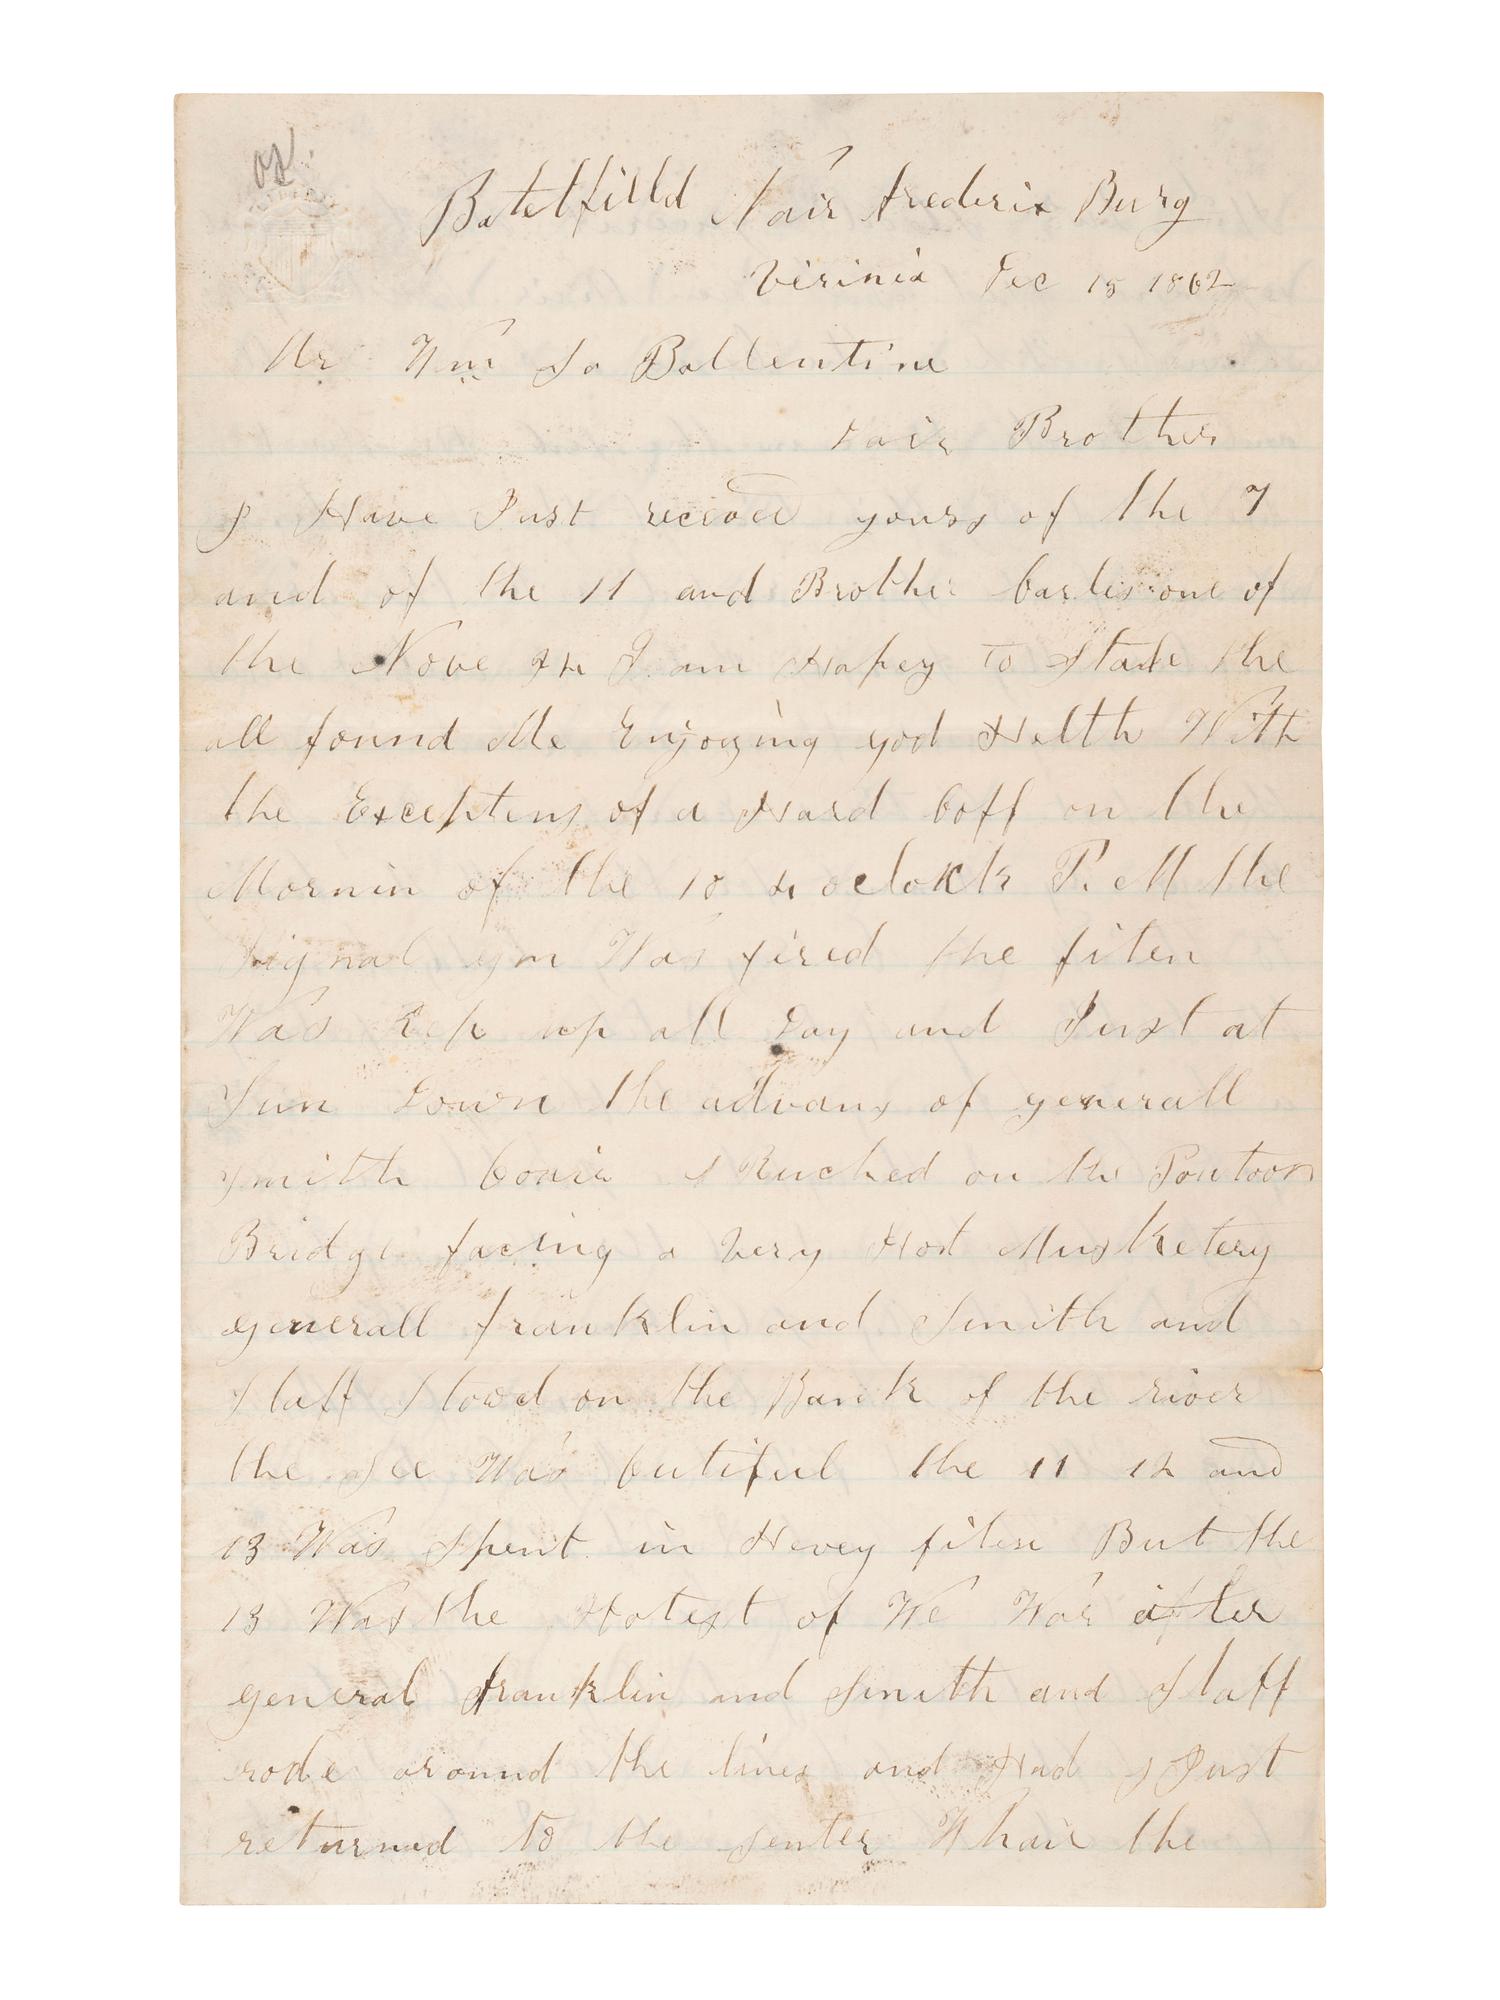 Batelfilld Nair fredrix Burg
Virinia Dec 15 1862
Mr Wm Jo Ballentine
Dair Brother
I Have Just receved yours of the 7
and of the 11 and Brother one of
the Nove I am Hapey to State the
all found Me Enjoying god Helth With
the Exceptens of a Hard Coff on the
Mornin of the 10 oclokk P. M the
Signal gun Was fired the fiten
Was Kep up all Day and Just at
Sun Down the advans of generall
Smith Coair Ruched on the Pontoon
Bridge facing a Very Hot Musketery
generall franklin and Smith and
Staff Stowd on the Bank of the river
the See Was butiful the 11 12 and
13 Was Spent in Hevey fiten But the
13 Was the Hotest of We War after
general franklin and Smith and Staff
rode around the lines and Had Just
returned to the Senter Whair the